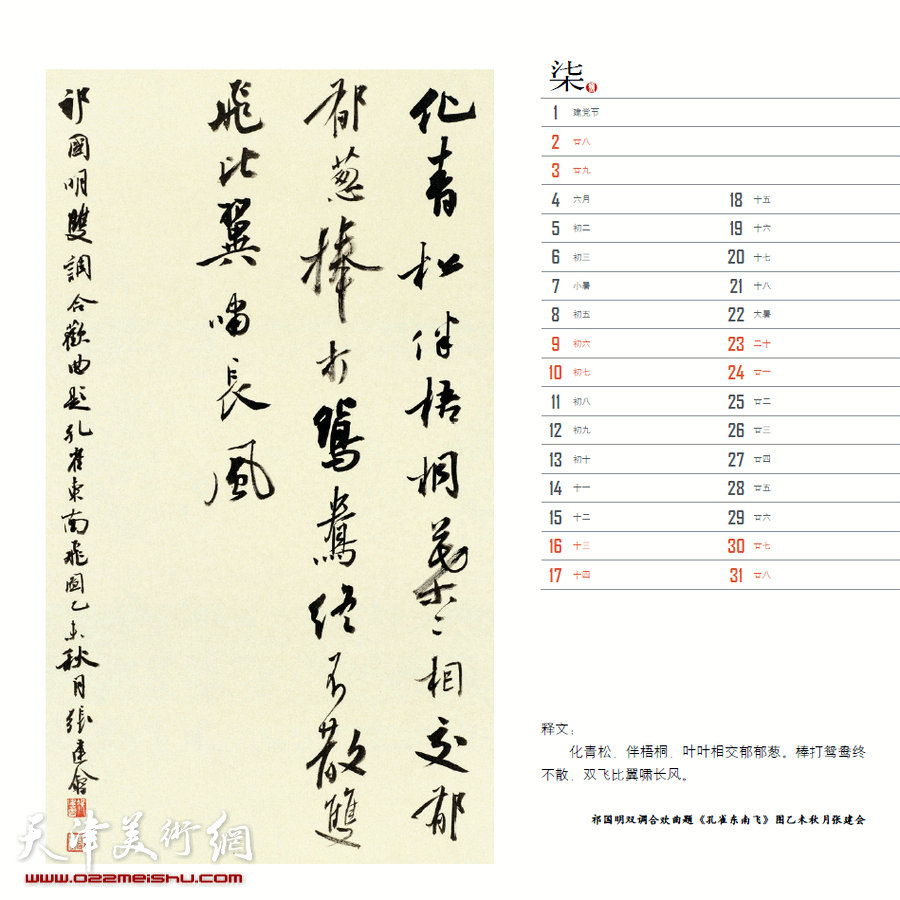 化青松伴梧桐葉〻相交郁
郁葱棒打鴛鴦終不散雙
飛比翼嘯長風
祁國明雙調合歡曲題孔雀東南飛圖乙未秋月張建會
天津美術網
www.022meishu.com
柒
1 建党节
2 廿八
3 廿九
4 六月
5 初二
6 初三
7 小暑
8 初五
9 初六
10 初七
11 初八
12 初九
13 初十
14 十一
15 十二
16 十三
17 十四
18 十五
19 十六
20 十七
21 十八
22 大暑
23 二十
24 廿一
25 廿二
26 廿三
27 廿四
28 廿五
29 廿六
30 廿七
31 廿八
释文：
化青松、伴梧桐、叶叶相交郁郁葱。棒打鸳鸯终
不散、双飞比翼啸长风。
祁国明双调合欢曲题《孔雀东南飞》图乙未秋月张建会